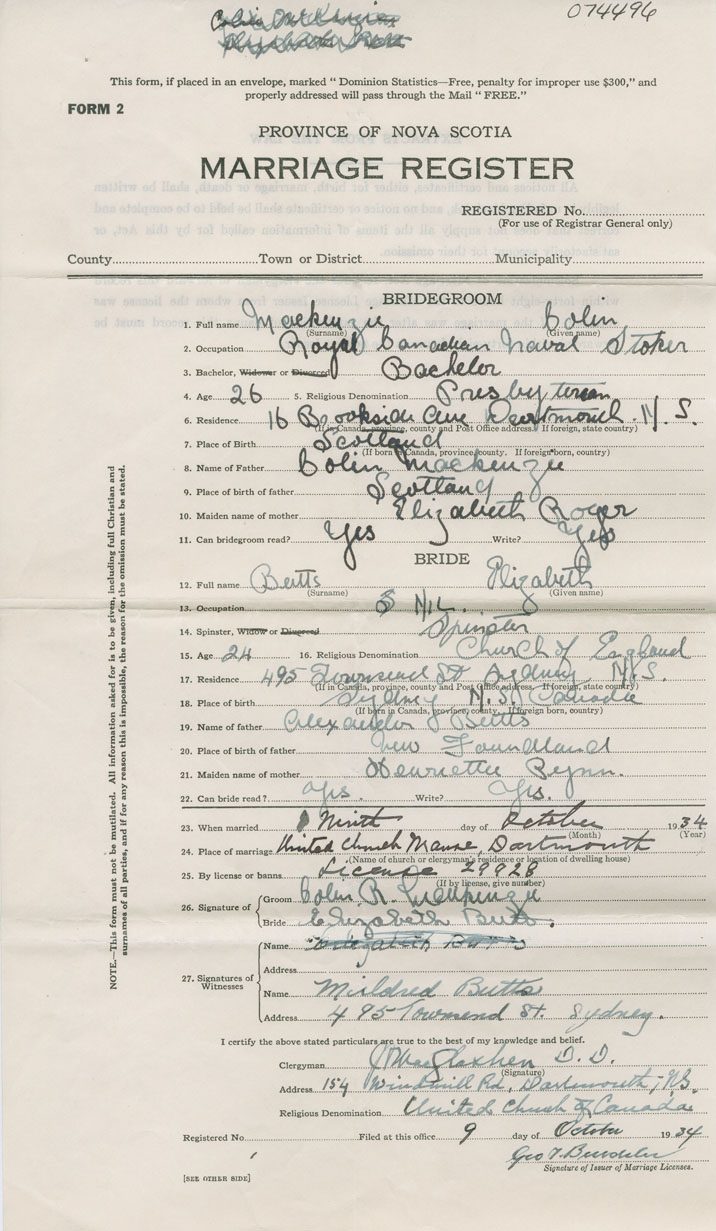 074496
This form, if placed in an envelope, marked "Dominion Statistics—Free, penalty for improper use $300," and
properly addressed will pass through the Mail "FREE."
FORM 2
PROVINCE OF NOVA SCOTIA
MARRIAGE REGISTER
REGISTERED No.
(For use of Registrar General only)
County Town or District Municipality
BRIDEGROOM
1. Full name Mackenzie Colin
(Surname) (Given name)
2. Occupation Royal Canadian Naval Stoker
3. Bachelor, Widower or Divorced Bachelor
4. Age 26 5. Religious Denomination Presbyterian
6. Residence 16 Brookside Ave Dartmouth. N.S.
(If in Canada, province, county and Post Office address. If foreign, state country)
7. Place of Birth Scotland
(If born in Canada, province, county. If foreign born, country)
8. Name of Father Colin Mackenzie
9. Place of birth of father Scotland
10. Maiden name of mother Elizabeth Roger
11. Can bridegroom read? Yes Write? Yes
BRIDE
12. Full name Butts Elizabeth
(Surname) (Given name)
13. Occupation NIL.
14. Spinster, Widow or Divorced Spinster
15. Age 24 16. Religious Denomination Church of England
17. Residence 495 Townsend St Sydney, N.S.
(If in Canada, province, county and Post Office address. If foreign, state country)
18. Place of birth Sydney N.S. Canada
(If born in Canada, province, county. If foreign born, country)
19. Name of father Alexander Butts
20. Place of birth of father New Foundland
21. Maiden name of mother Henrietta
22. Can bride read? yes. Write? yes.
23. When married Ninth day of October 1934
(Month) (Year)
24. Place of marriage United Church Manse, Dartmouth
(Name of church or clergyman's residence or location of dwelling house)
25. By license or banns License 29928
(If by license, give number)
26. Signature of Groom Colin R. Mackenzie
Bride Elizabeth Butts.
Name Elizabeth Butts
Address
27. Signatures of Witnesses
Name Mildred Butts
Address 495 Townsend St. Sydney.
I certify the above stated particulars are true to the best of my knowledge and belief.
Clergyman D. D.
(Signature)
Address 154 Windmill Rd, Dartmouth, N.S.
Religious Denomination United Church of Canada
Registered No. Filed at this office 9 day of October 1934
Geo
Signature of Issuer of Marriage Licenses.
[SEE OTHER SIDE]
NOTE.—This form must not be mutilated. All information asked for is to be given, including full Christian and
surnames of all parties, and if for any reason this is impossible, the reason for the omission must be stated.